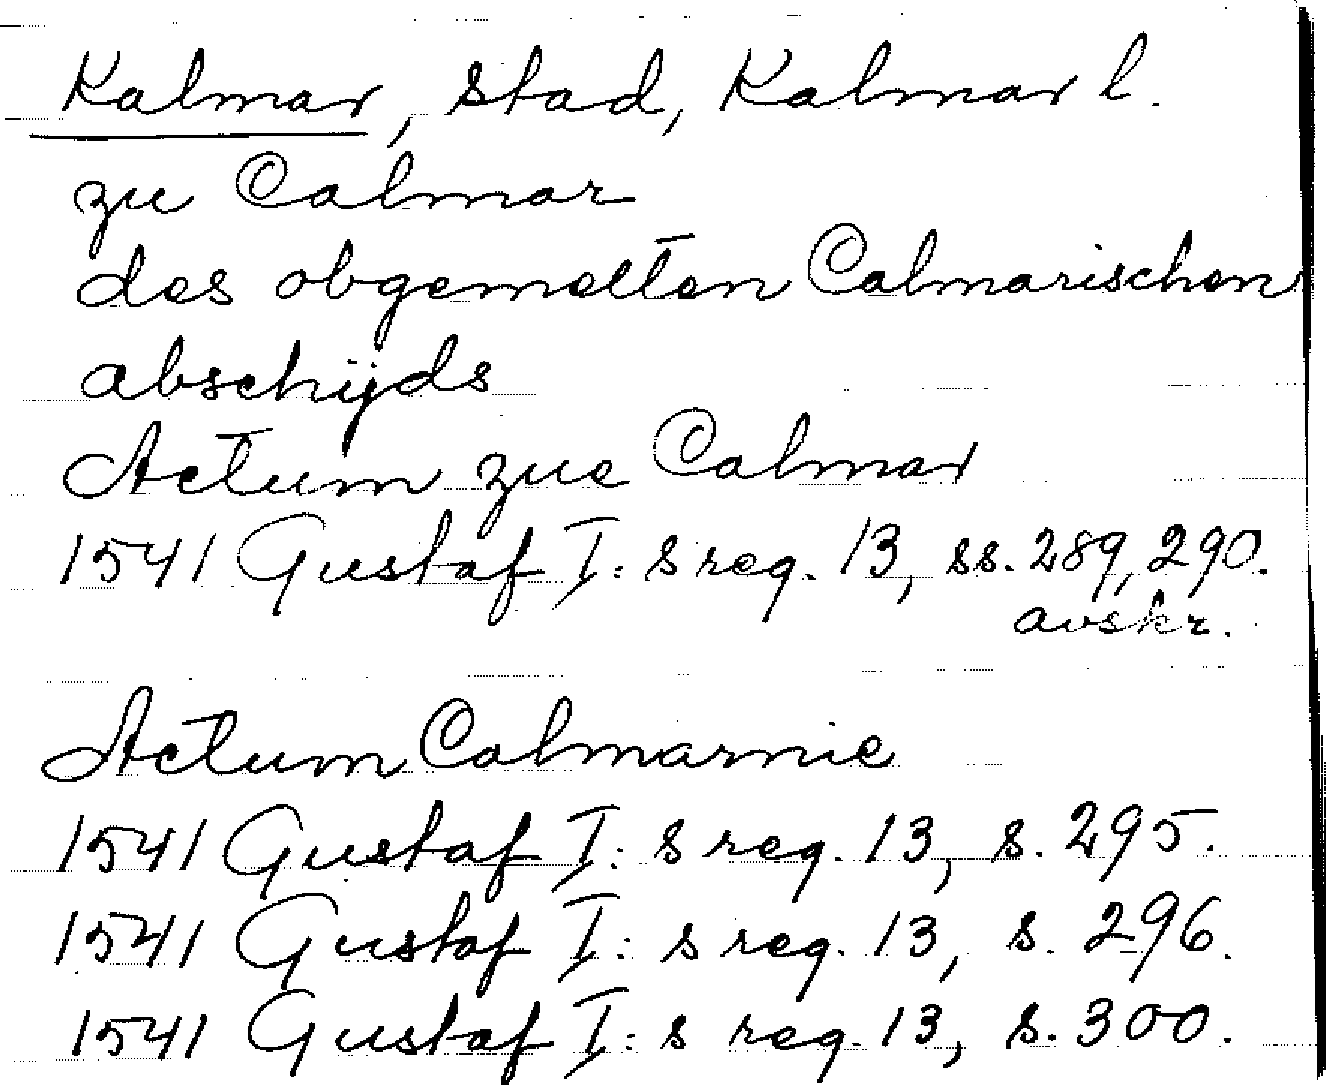 Kalmar, stad, Kalmar l.
zu Calmar
des obgemelten Calmarischen
abschijds
Actum zue Calmar
1541 Gustaf I:s reg. 13, ss. 289, 290.
avskr.
Actum Calmarnie
1541 Gustaf I:s reg. 13, s. 295.
1541 Gustaf I:s reg. 13, s. 296.
1541 Gustaf I:s reg. 13, s. 300.